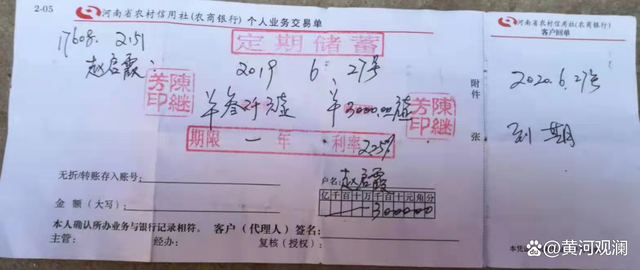 2-05
河南省农村信用社(农商银行) 个人业务交易单
定期储蓄
赵启霞
2019 6 27号
陳継芳印
陳継芳印
期限 一 年 利率 2.25%
附件 张
无折/转账存入账号:
户名: 赵启霞
金额(大写):
亿千百十万千百十元角分
300000
本人确认所办业务与银行记录相符。 客户(代理人)签名:
主管: 经办: 复核(授权):
河南省农村信用社(农商银行)
客户回单
2020.6.27号
到期
@黄河观澜